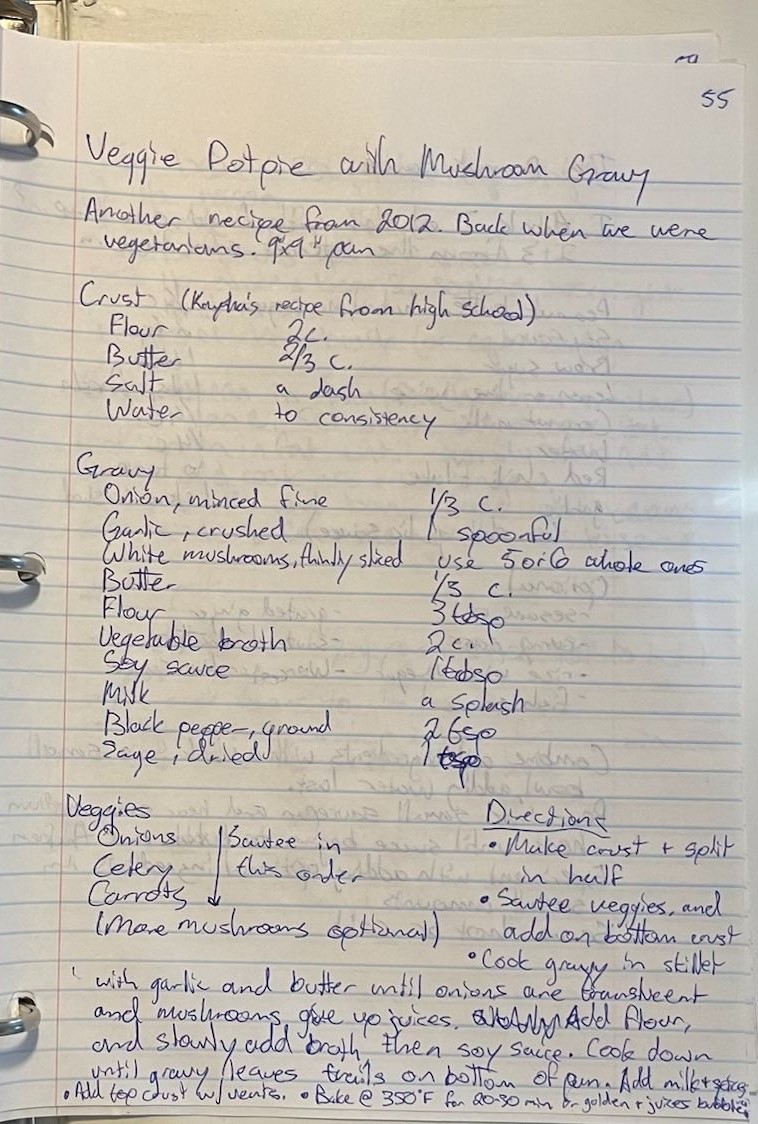 55
Veggie Potpie with Mushroom Gravy
Another recipe from 2012. Back when we were
vegetarians. 9x9" pan
Crust (Keysha's recipe from high school)
Flour 2c.
Butter 2/3 c.
Salt a dash
Water to consistency
Gravy
Onion, minced fine 1/3 c.
Garlic, crushed 1 spoonful
White mushrooms, thinly sliced use 5 or 6 whole ones
Butter 1/3 c.
Flour 3 tbsp
Vegetable broth 2c.
Soy sauce 1 tbsp
Milk a splash
Black pepper, ground 2 tsp
Sage, dried 1 tsp
Veggies
Onions
Celery
Carrots
Sautee in
this order
(More mushrooms optional)
Directions
• Make crust + split
in half
• Sautee veggies, and
add on bottom crust
• Cook gravy in skillet
with garlic and butter until onions are translucent
and mushrooms give up juices. Add flour,
and slowly add broth, then soy sauce. Cook down
until gravy leaves trails on bottom of pan. Add milk + spices.
• Add top crust w/ vents. • Bake @ 350°F for 20-30 min or golden + juices bubble